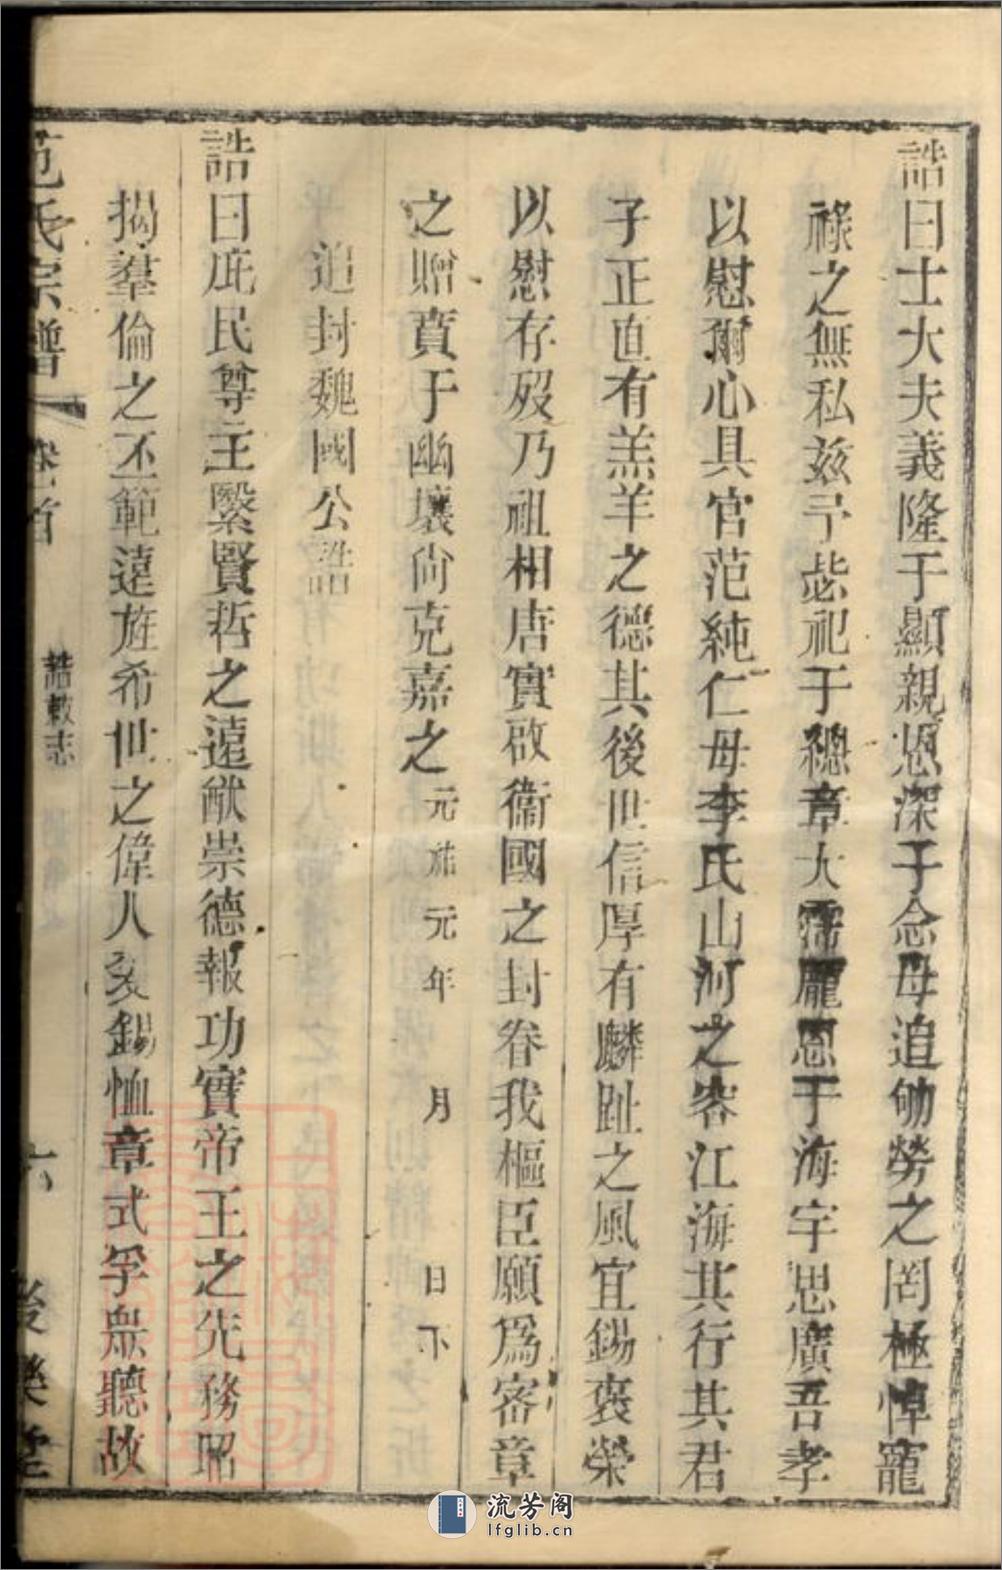 誥曰士大夫義隆于顯親恩深于念母追劬勞之罔極悼寵
祿之無私玆予毖祀于總章大霈龎恩于海宇思廣吾孝
以慰爾心具官范純仁母李氏山河之容江海其行其君
子正直有羔羊之德其後世信厚有麟趾之風宜錫褒榮
以慰存歿乃祖相唐實啟衞國之封眷我樞臣願爲密章
之贈賁于幽壤尙克嘉之元祐元年 月 日下
追封魏國公誥
誥曰庶民尊王繄賢哲之遠猷崇德報功實帝王之先務昭
揭羣倫之丕範遠旌希世之偉人爰錫恤章式孚眾聽故
范氏宗譜 卷首 誥敕志 六 後樂堂
流芳阁
lfglib.cn